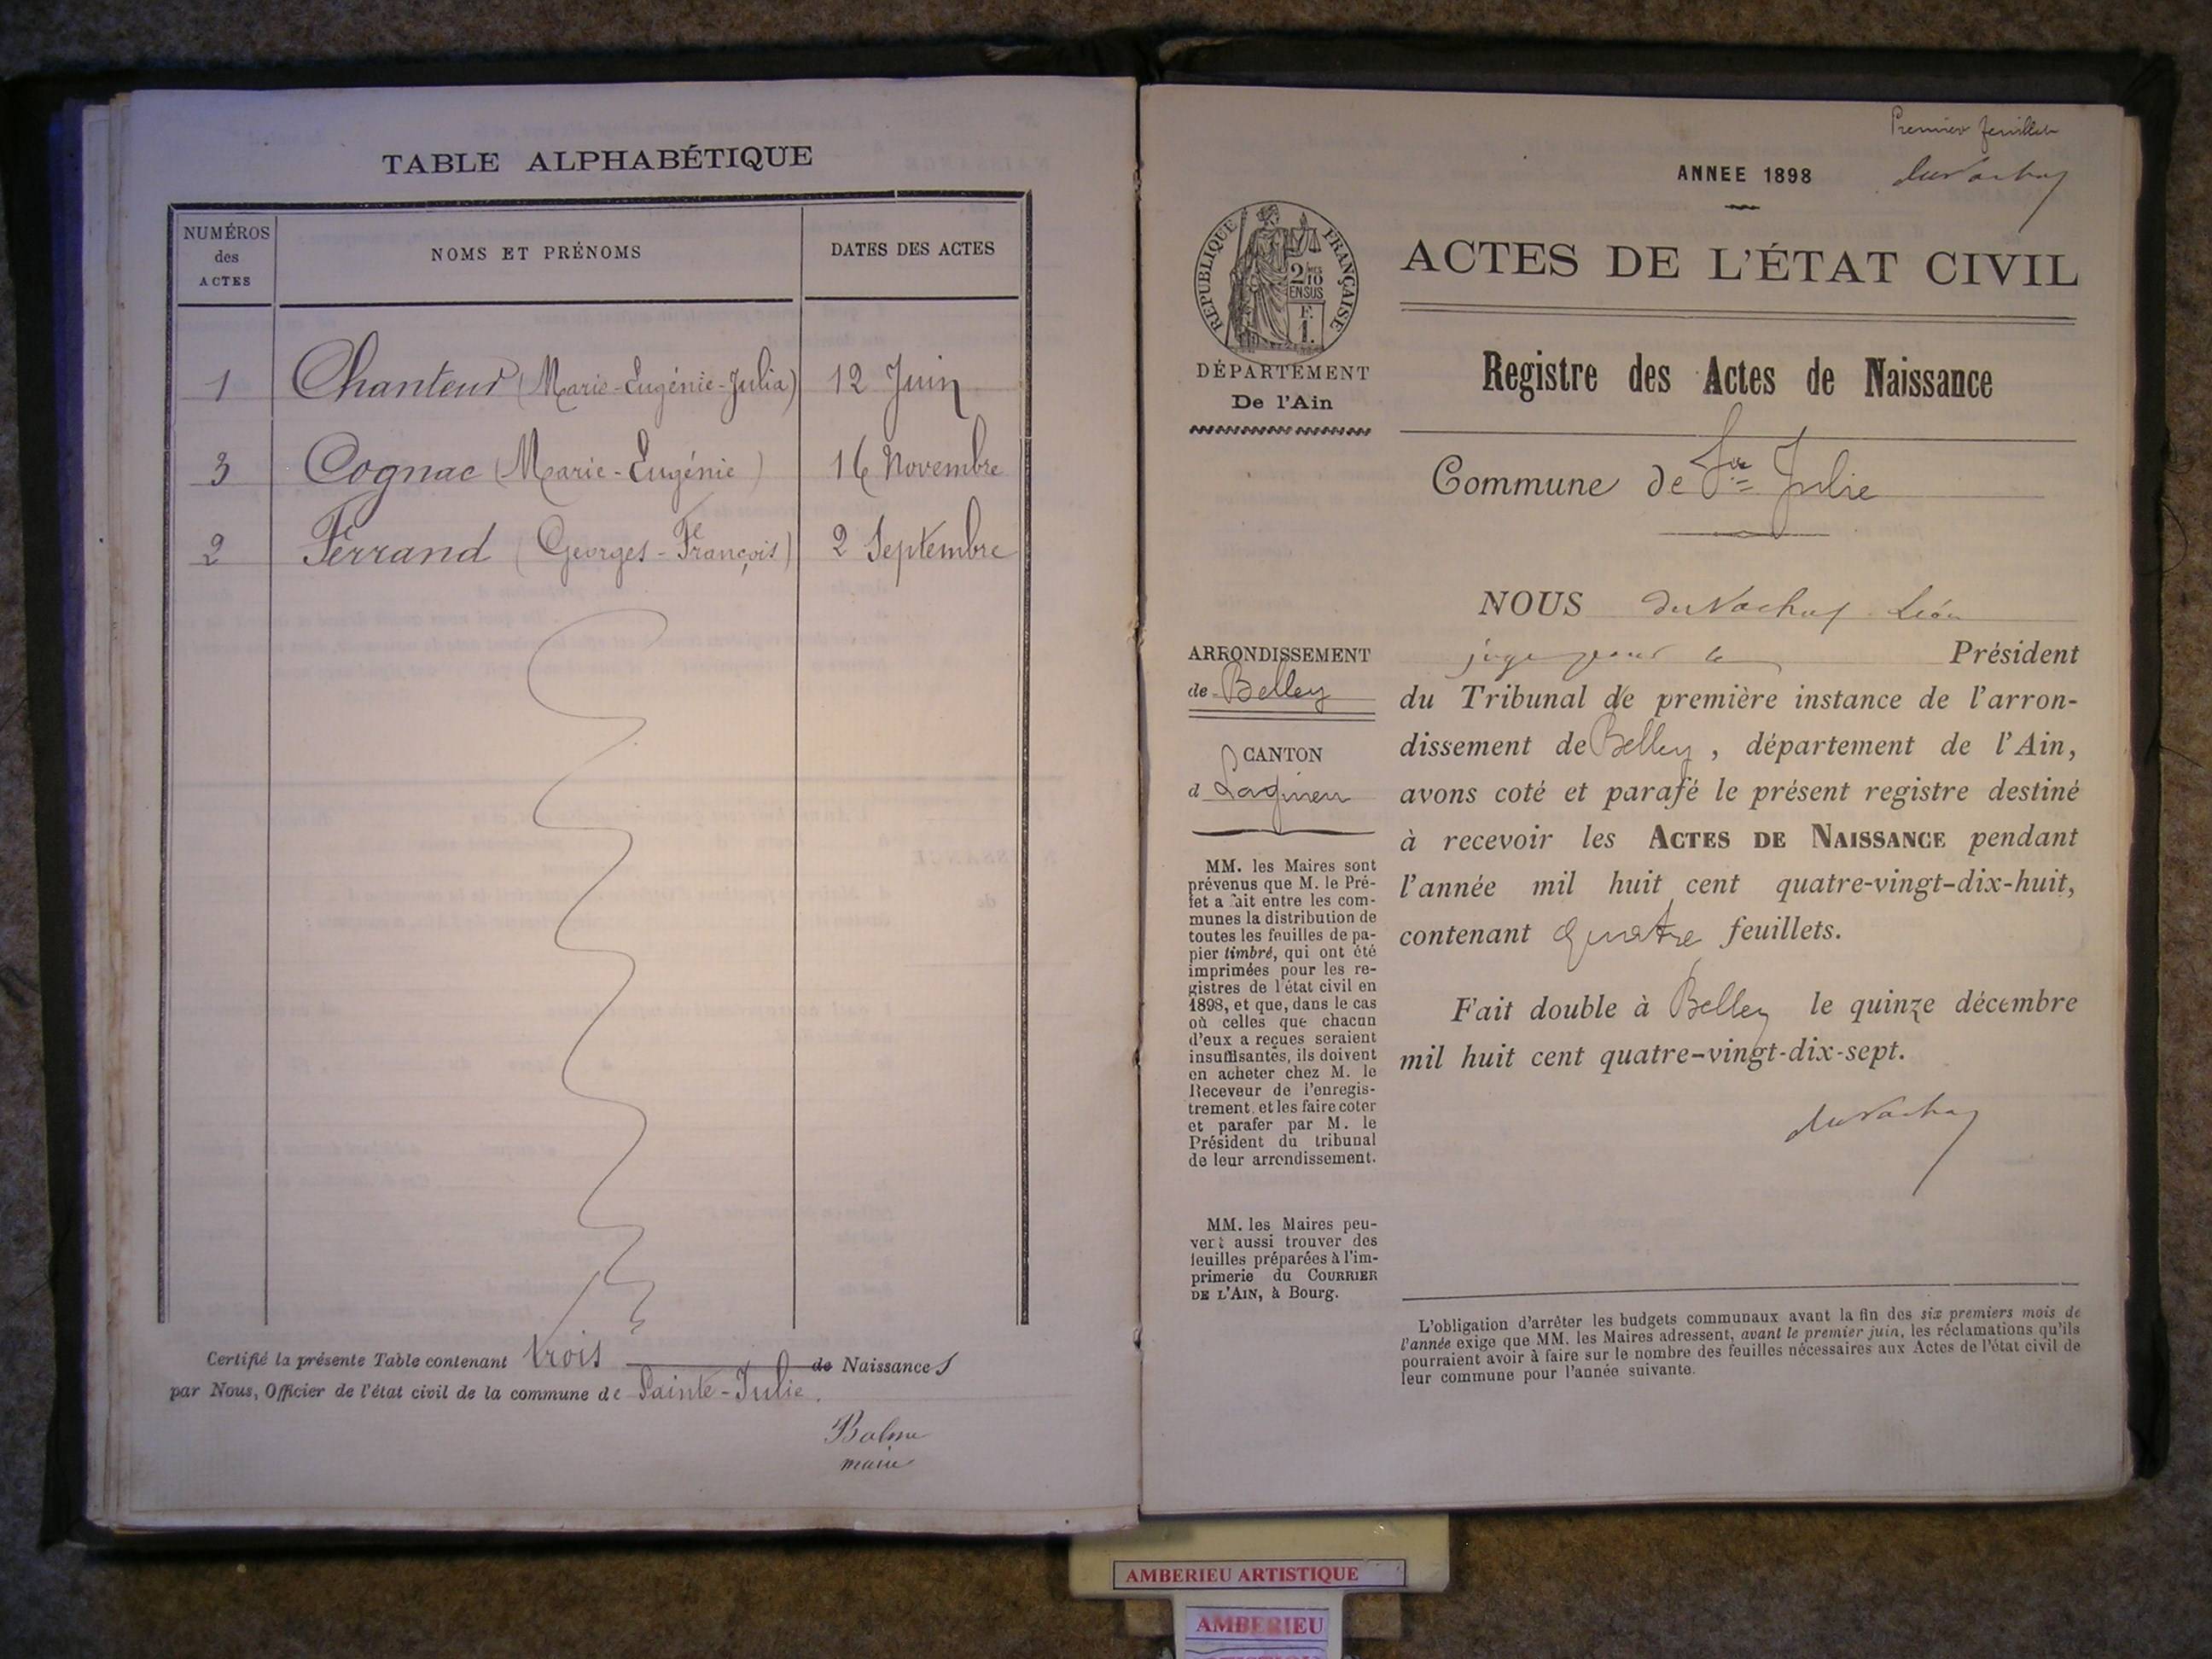 TABLE ALPHABÉTIQUE
NUMÉROS des ACTES
NOMS ET PRÉNOMS
DATES DES ACTES
1 Chanteur (Marie-Eugénie-Julia) 12 Juin
3 Cognac (Marie-Eugénie) 16 Novembre
2 Ferrand (Georges-François) 2 Septembre
Certifié la présente Table contenant trois de Naissances
par Nous, Officier de l'état civil de la commune de Sainte-Julie.
Balme
maire
Premier feuillet
ANNEE 1898
RÉPUBLIQUE FRANÇAISE
2/10
EN SUS
F.
1.
DÉPARTEMENT
De l'Ain
ACTES DE L'ÉTAT CIVIL
Registre des Actes de Naissance
Commune de Ste Julie
ARRONDISSEMENT
de Belley
CANTON
d Lagnieu
MM. les Maires sont
prévenus que M. le Pré-
fet a fait entre les com-
munes la distribution de
toutes les feuilles de pa-
pier timbré, qui ont été
imprimées pour les re-
gistres de l'état civil en
1898, et que, dans le cas
où celles que chacun
d'eux a reçues seraient
insuffisantes, ils doivent
en acheter chez M. le
Receveur de l'enregis-
trement, et les faire coter
et parafer par M. le
Président du tribunal
de leur arrondissement.
MM. les Maires peu-
vent aussi trouver des
feuilles préparées à l'im-
primerie du COURRIER
DE L'AIN, à Bourg.
NOUS duVachat Léon
juge pour le Président
du Tribunal de première instance de l'arron-
dissement de Belley, département de l'Ain,
avons coté et parafé le présent registre destiné
à recevoir les ACTES DE NAISSANCE pendant
l'année mil huit cent quatre-vingt-dix-huit,
contenant quatre feuillets.
Fait double à Belley le quinze décembre
mil huit cent quatre-vingt-dix-sept.
L'obligation d'arrêter les budgets communaux avant la fin des six premiers mois de
l'année exige que MM. les Maires adressent, avant le premier juin, les réclamations qu'ils
pourraient avoir à faire sur le nombre des feuilles nécessaires aux Actes de l'état civil de
leur commune pour l'année suivante.
AMBERIEU ARTISTIQUE
AMBERIEU